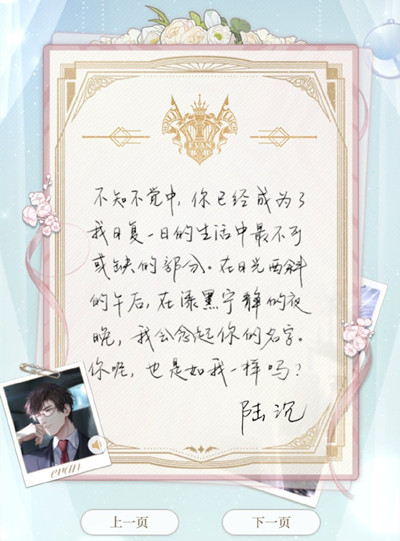 EVAN
不知不觉中，你已经成为了
我日复一日的生活中最不可
或缺的部分。在日光西斜
的午后，在漆黑宁静的夜
晚，我会念起你的名字。
你呢，也是如我一样吗？
陆沉
evan
上一页
下一页